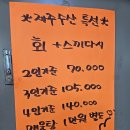 *제주수산 특선*
회 + 스끼다시
2인기준 70.000
3인기준 105.000
4인기준 140.000
매운탕 1만원 별도